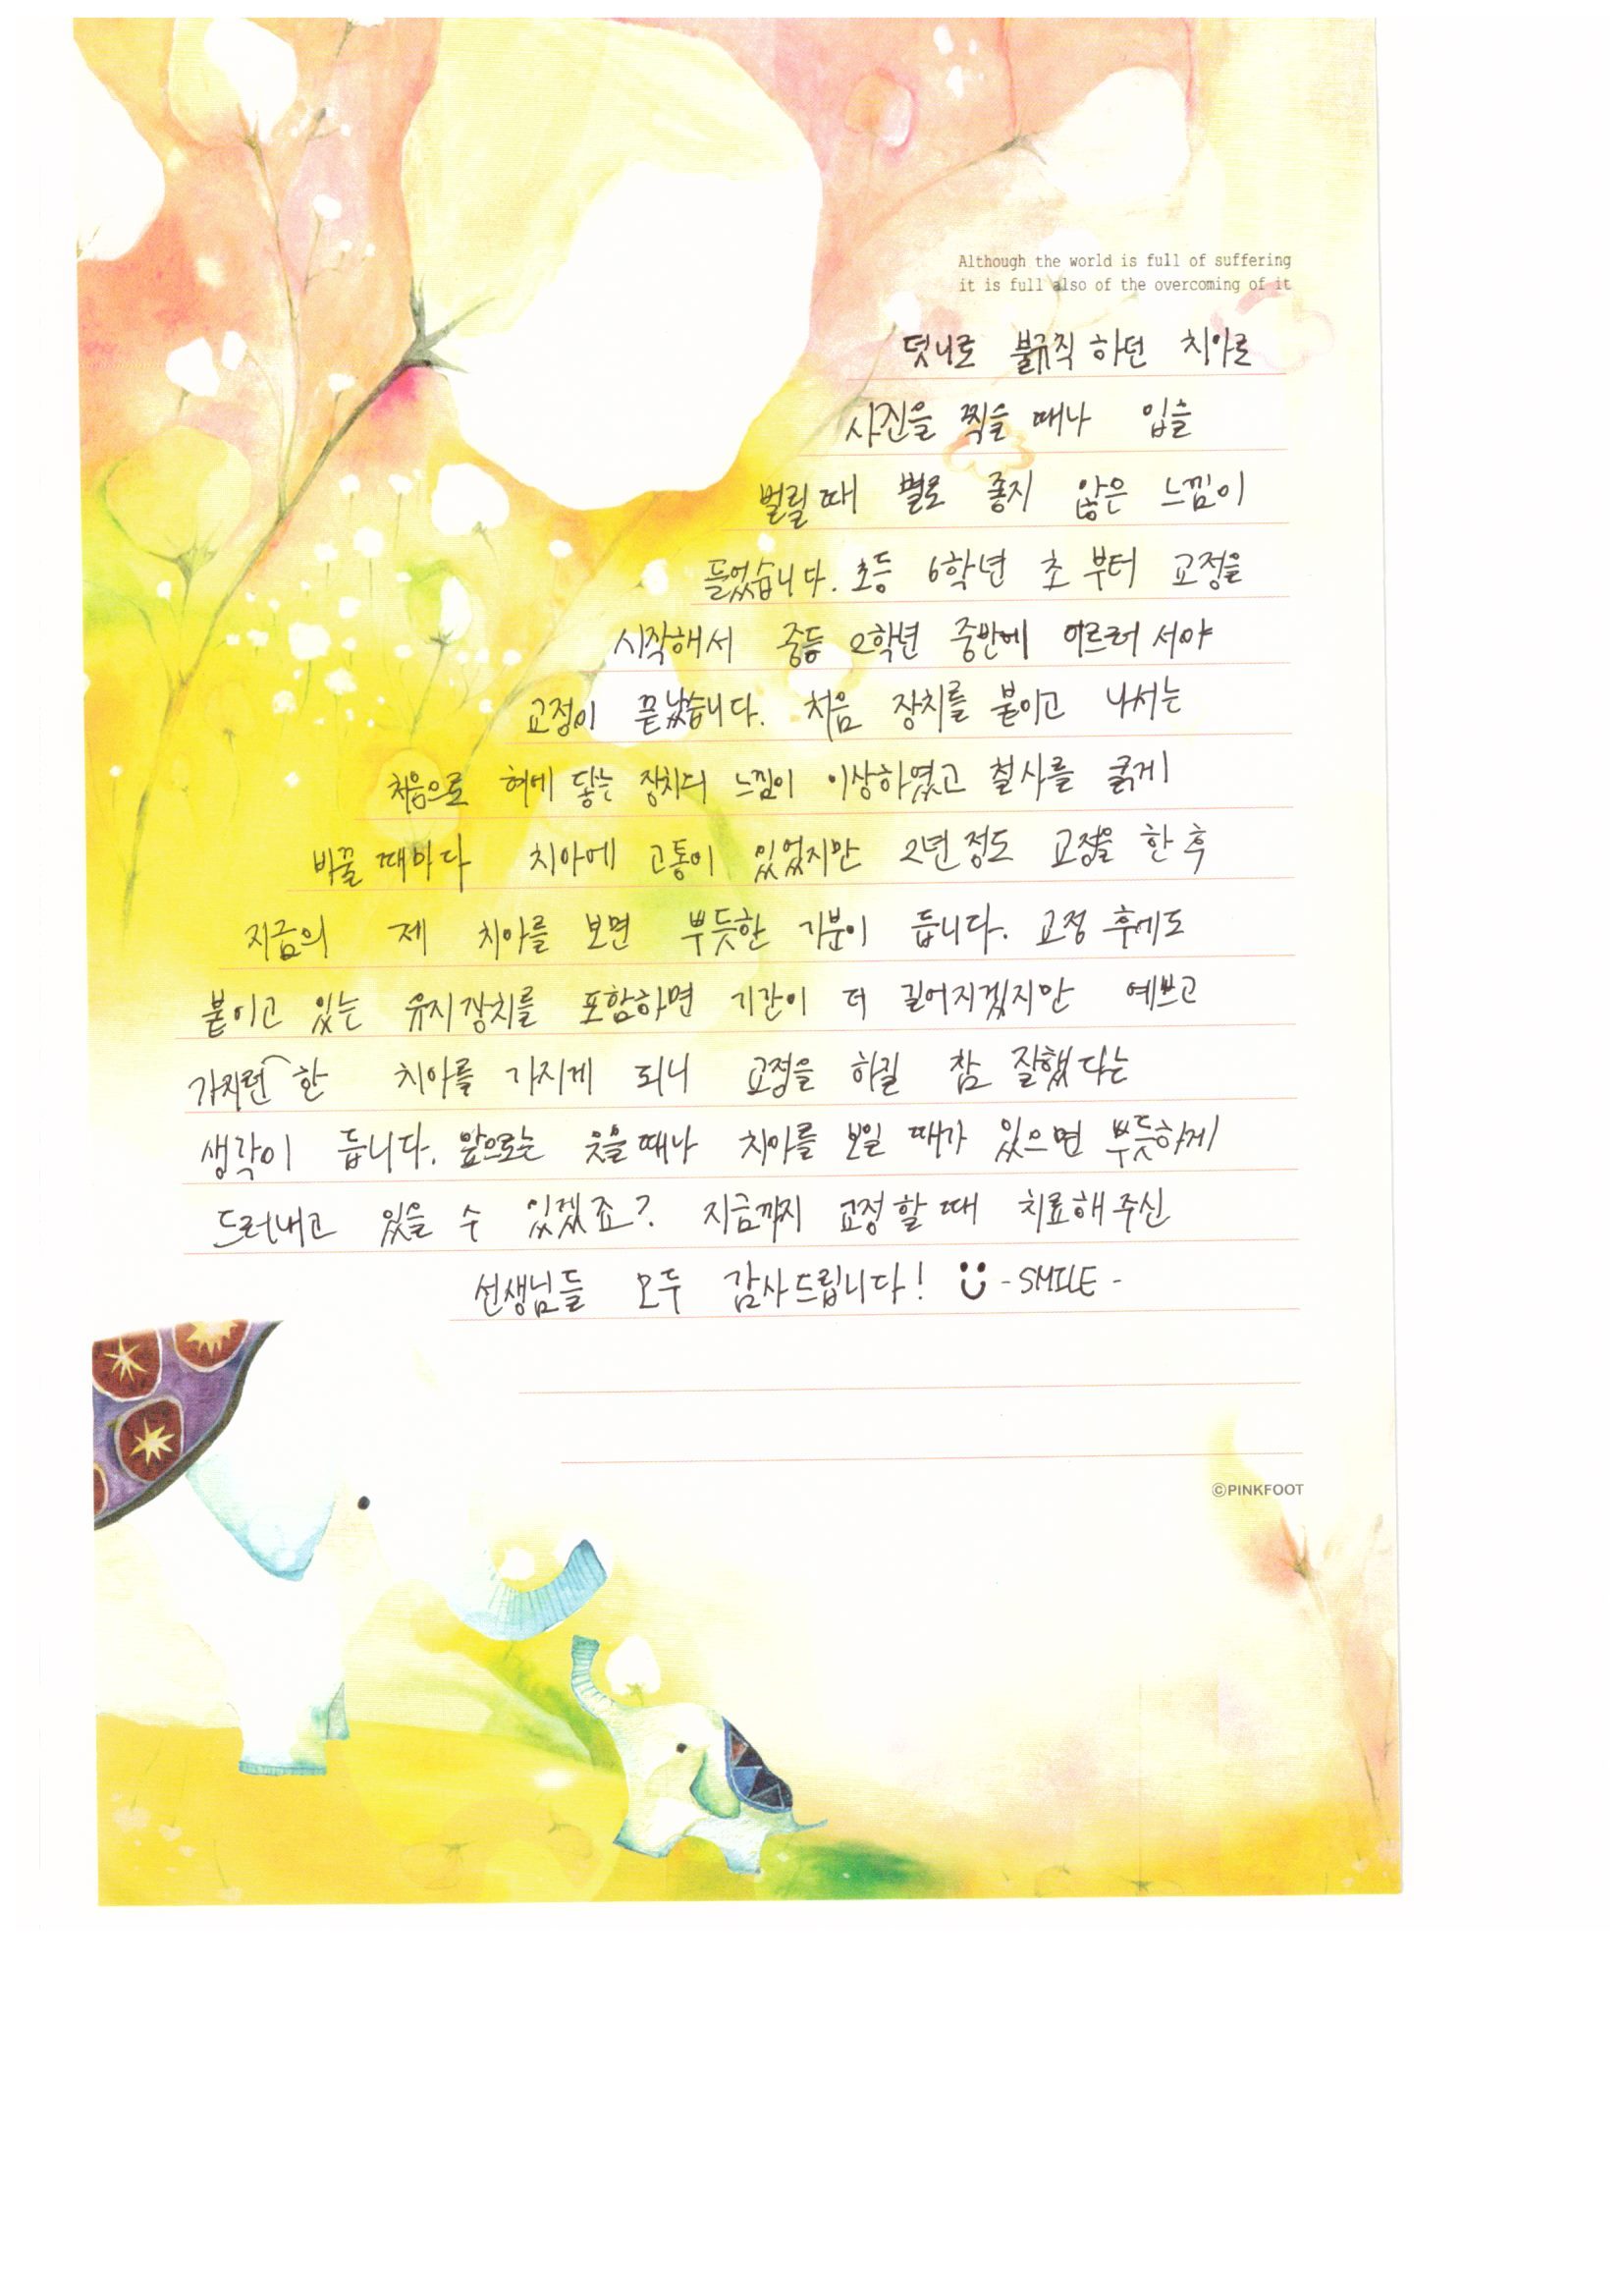 Although the world is full of suffering
it is full also of the overcoming of it
덧니로 불규칙 하던 치아로
사진을 찍을 때나 입을
벌릴 때 별로 좋지 않은 느낌이
들었습니다. 초등 6학년 초 부터 교정을
시작해서 중등 2학년 중반에 이르러 서야
교정이 끝났습니다. 처음 장치를 붙이고 나서는
처음으로 혀에 닿는 장치의 느낌이 이상하였고 철사를 굵게
바꿀 때마다 치아에 고통이 있었지만 2년 정도 교정을 한 후
지금의 제 치아를 보면 뿌듯한 기분이 듭니다. 교정 후에도
붙이고 있는 유지장치를 포함하면 기간이 더 길어지겠지만 예쁘고
가지런 한 치아를 가지게 되니 교정을 하길 참 잘했다는
생각이 듭니다. 앞으로는 웃을 때나 치아를 보일 때가 있으면 뿌듯하게
드러내고 있을 수 있겠죠? 지금까지 교정 할 때 치료해 주신
선생님들 모두 감사드립니다! - SMILE -
©PINKFOOT